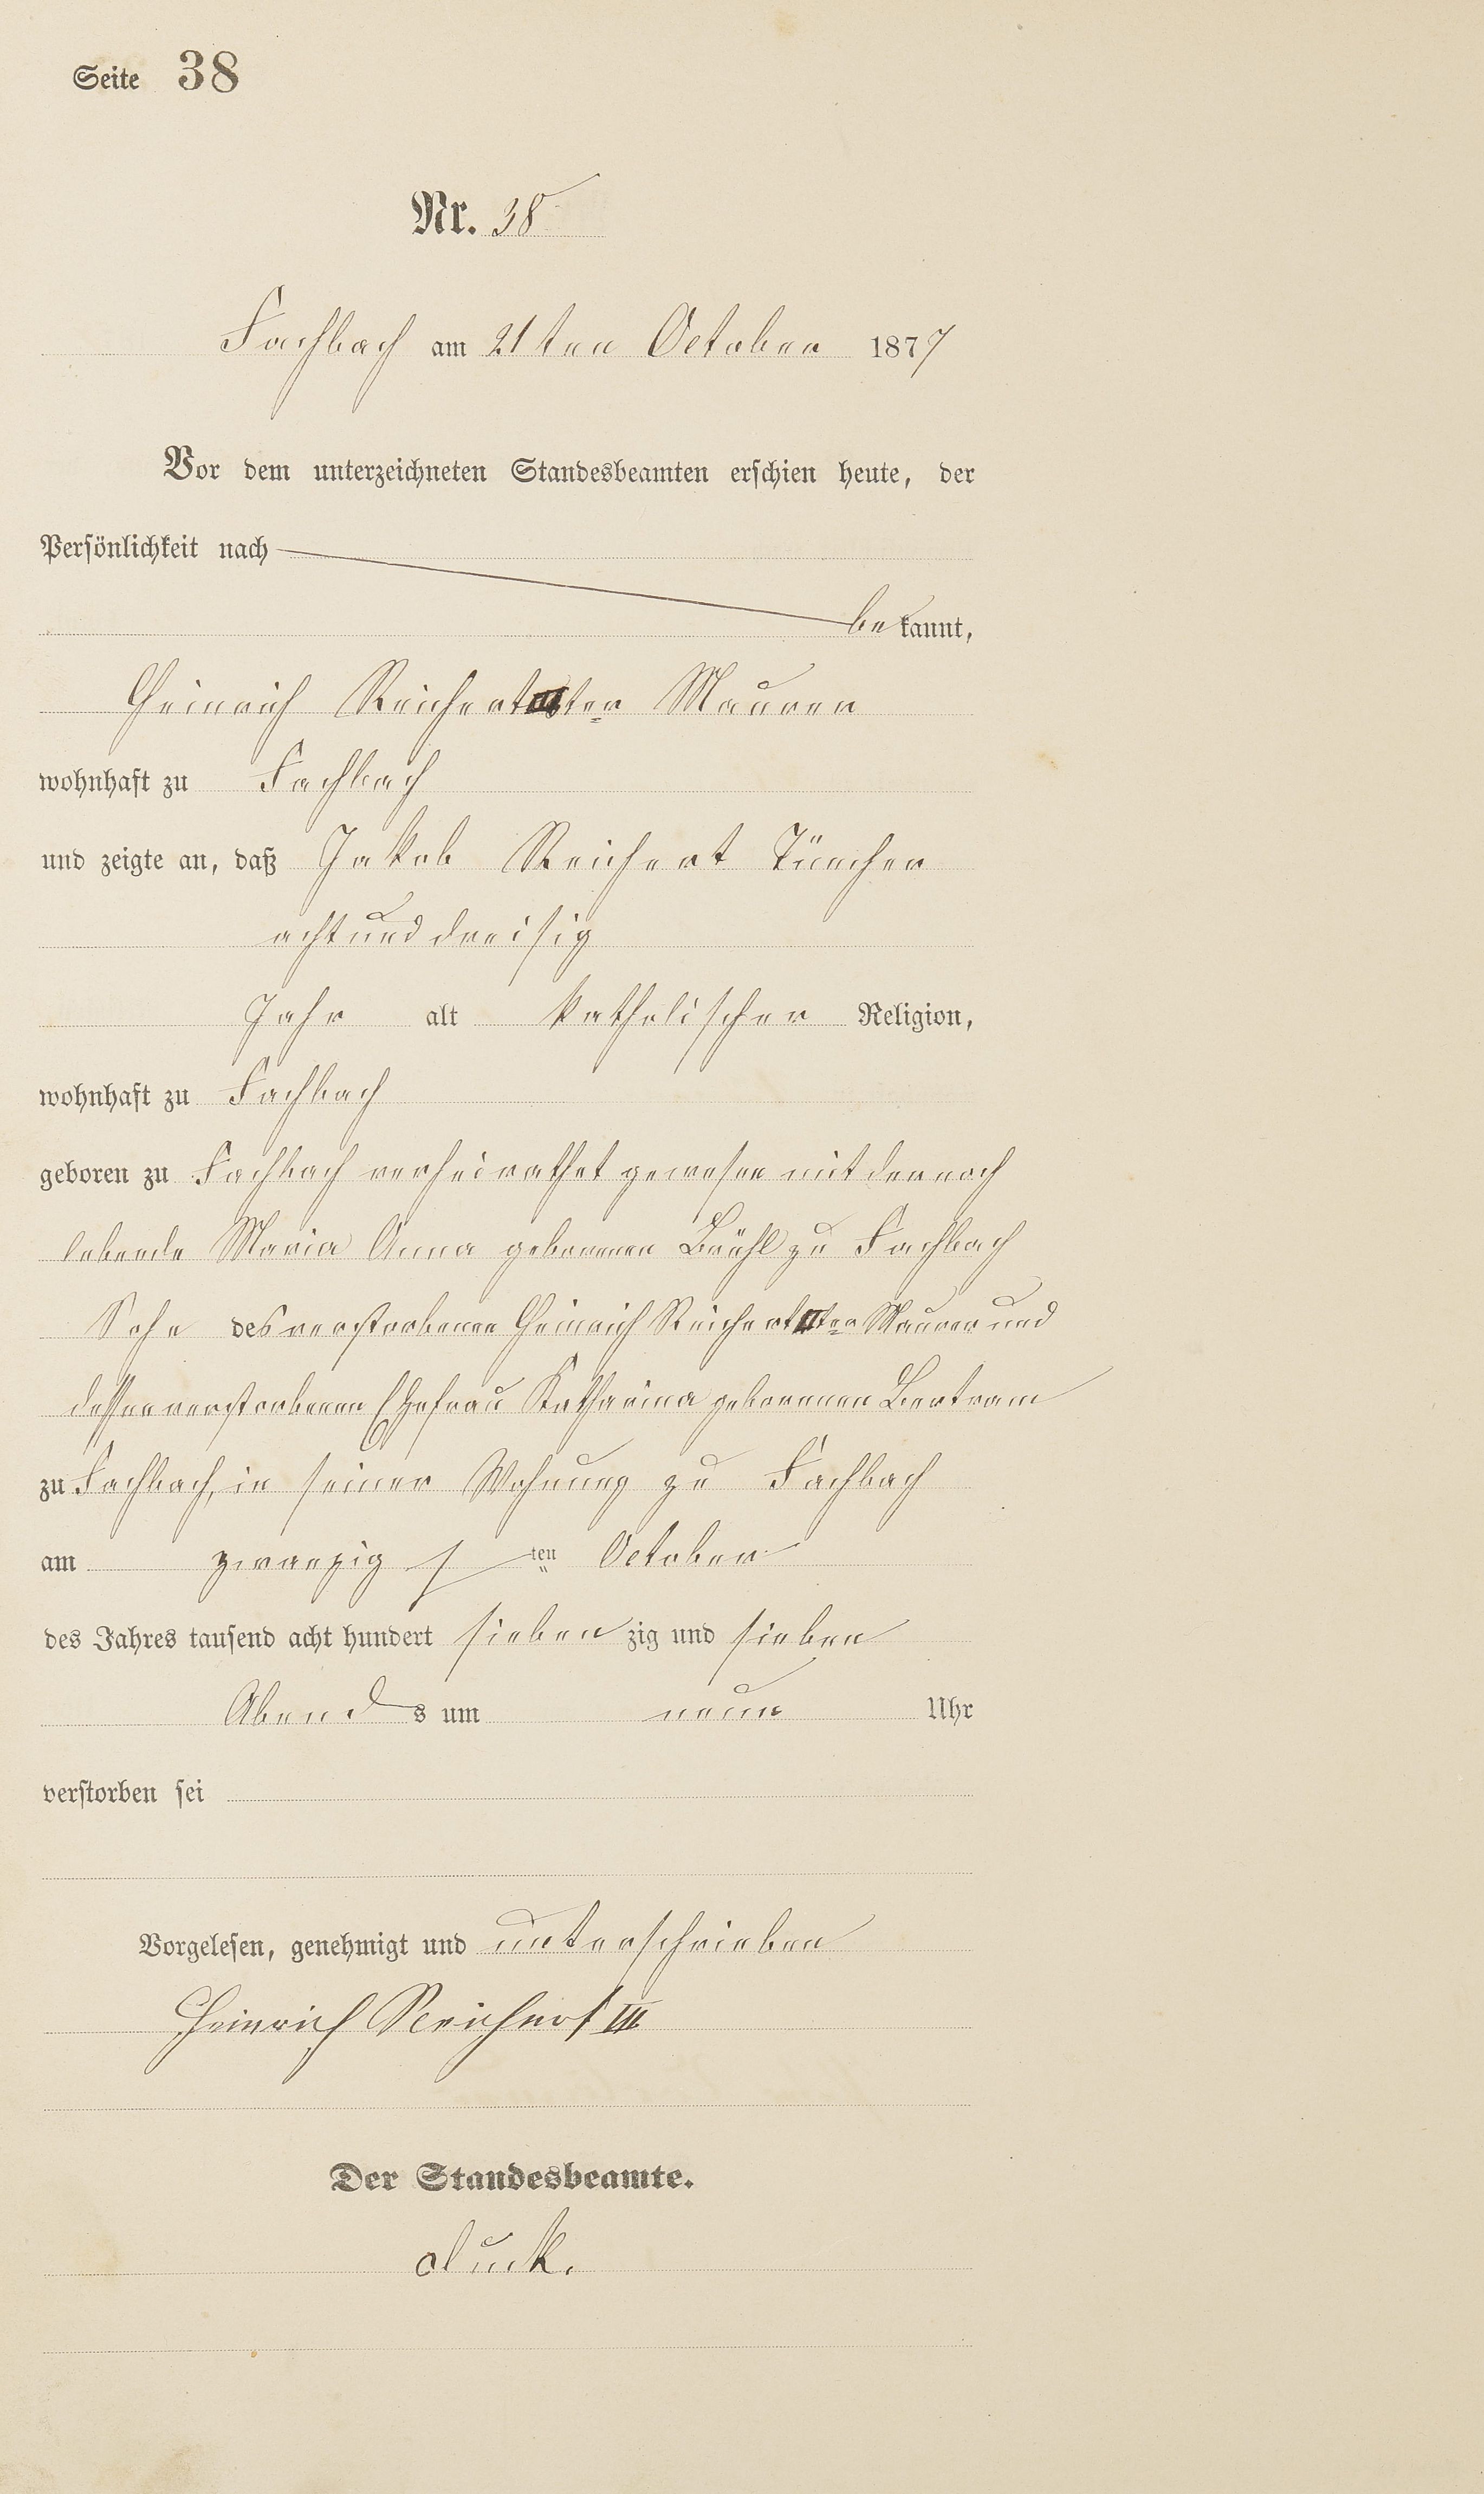 Seite 38
Nr. 38
Fachbach am 21ten October 1877
Vor dem unterzeichneten Standesbeamten erschien heute, der
Persönlichkeit nach
bekannt,
Heinrich Reichert IIIter Maurer
wohnhaft zu Fachbach
und zeigte an, daß Jakob Reichert Tüncher
achtunddreisig
Jahr alt katholischer Religion,
wohnhaft zu Fachbach
geboren zu Fachbach verheirathet gewesen mit der noch
lebende Maria Anna geborenen Brühl zu Fachbach
Sohn des verstorbenen Heinrich Reichert IIter Maurer und
dessen verstorbenen Ehefrau Katharina geborenen Bertram
zu Fachbach, in seiner Wohnung zu Fachbach
am zwanzigsten October
des Jahres tausend acht hundert siebenzig und sieben
Abends um neun Uhr
verstorben sei
Vorgelesen, genehmigt und unterschrieben
Heinrich Reichert III
Der Standesbeamte.